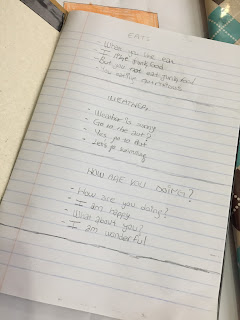 EATS
- When you like
- I like junk food
- But you not eat junk food
- You eating
WEATHER
- Weather is sunny
- Go in the sun?
- Yes, go to that
- Let's go running
HOW ARE YOU DOING?
- How are you doing?
- I am happy
- What about you?
- I am wonderful